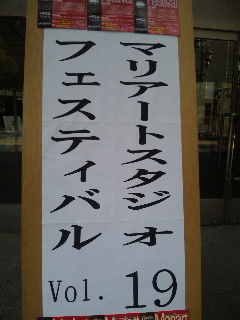 Festival
マリアートスタジオ
フェスティバル
Vol. 19
Mariart